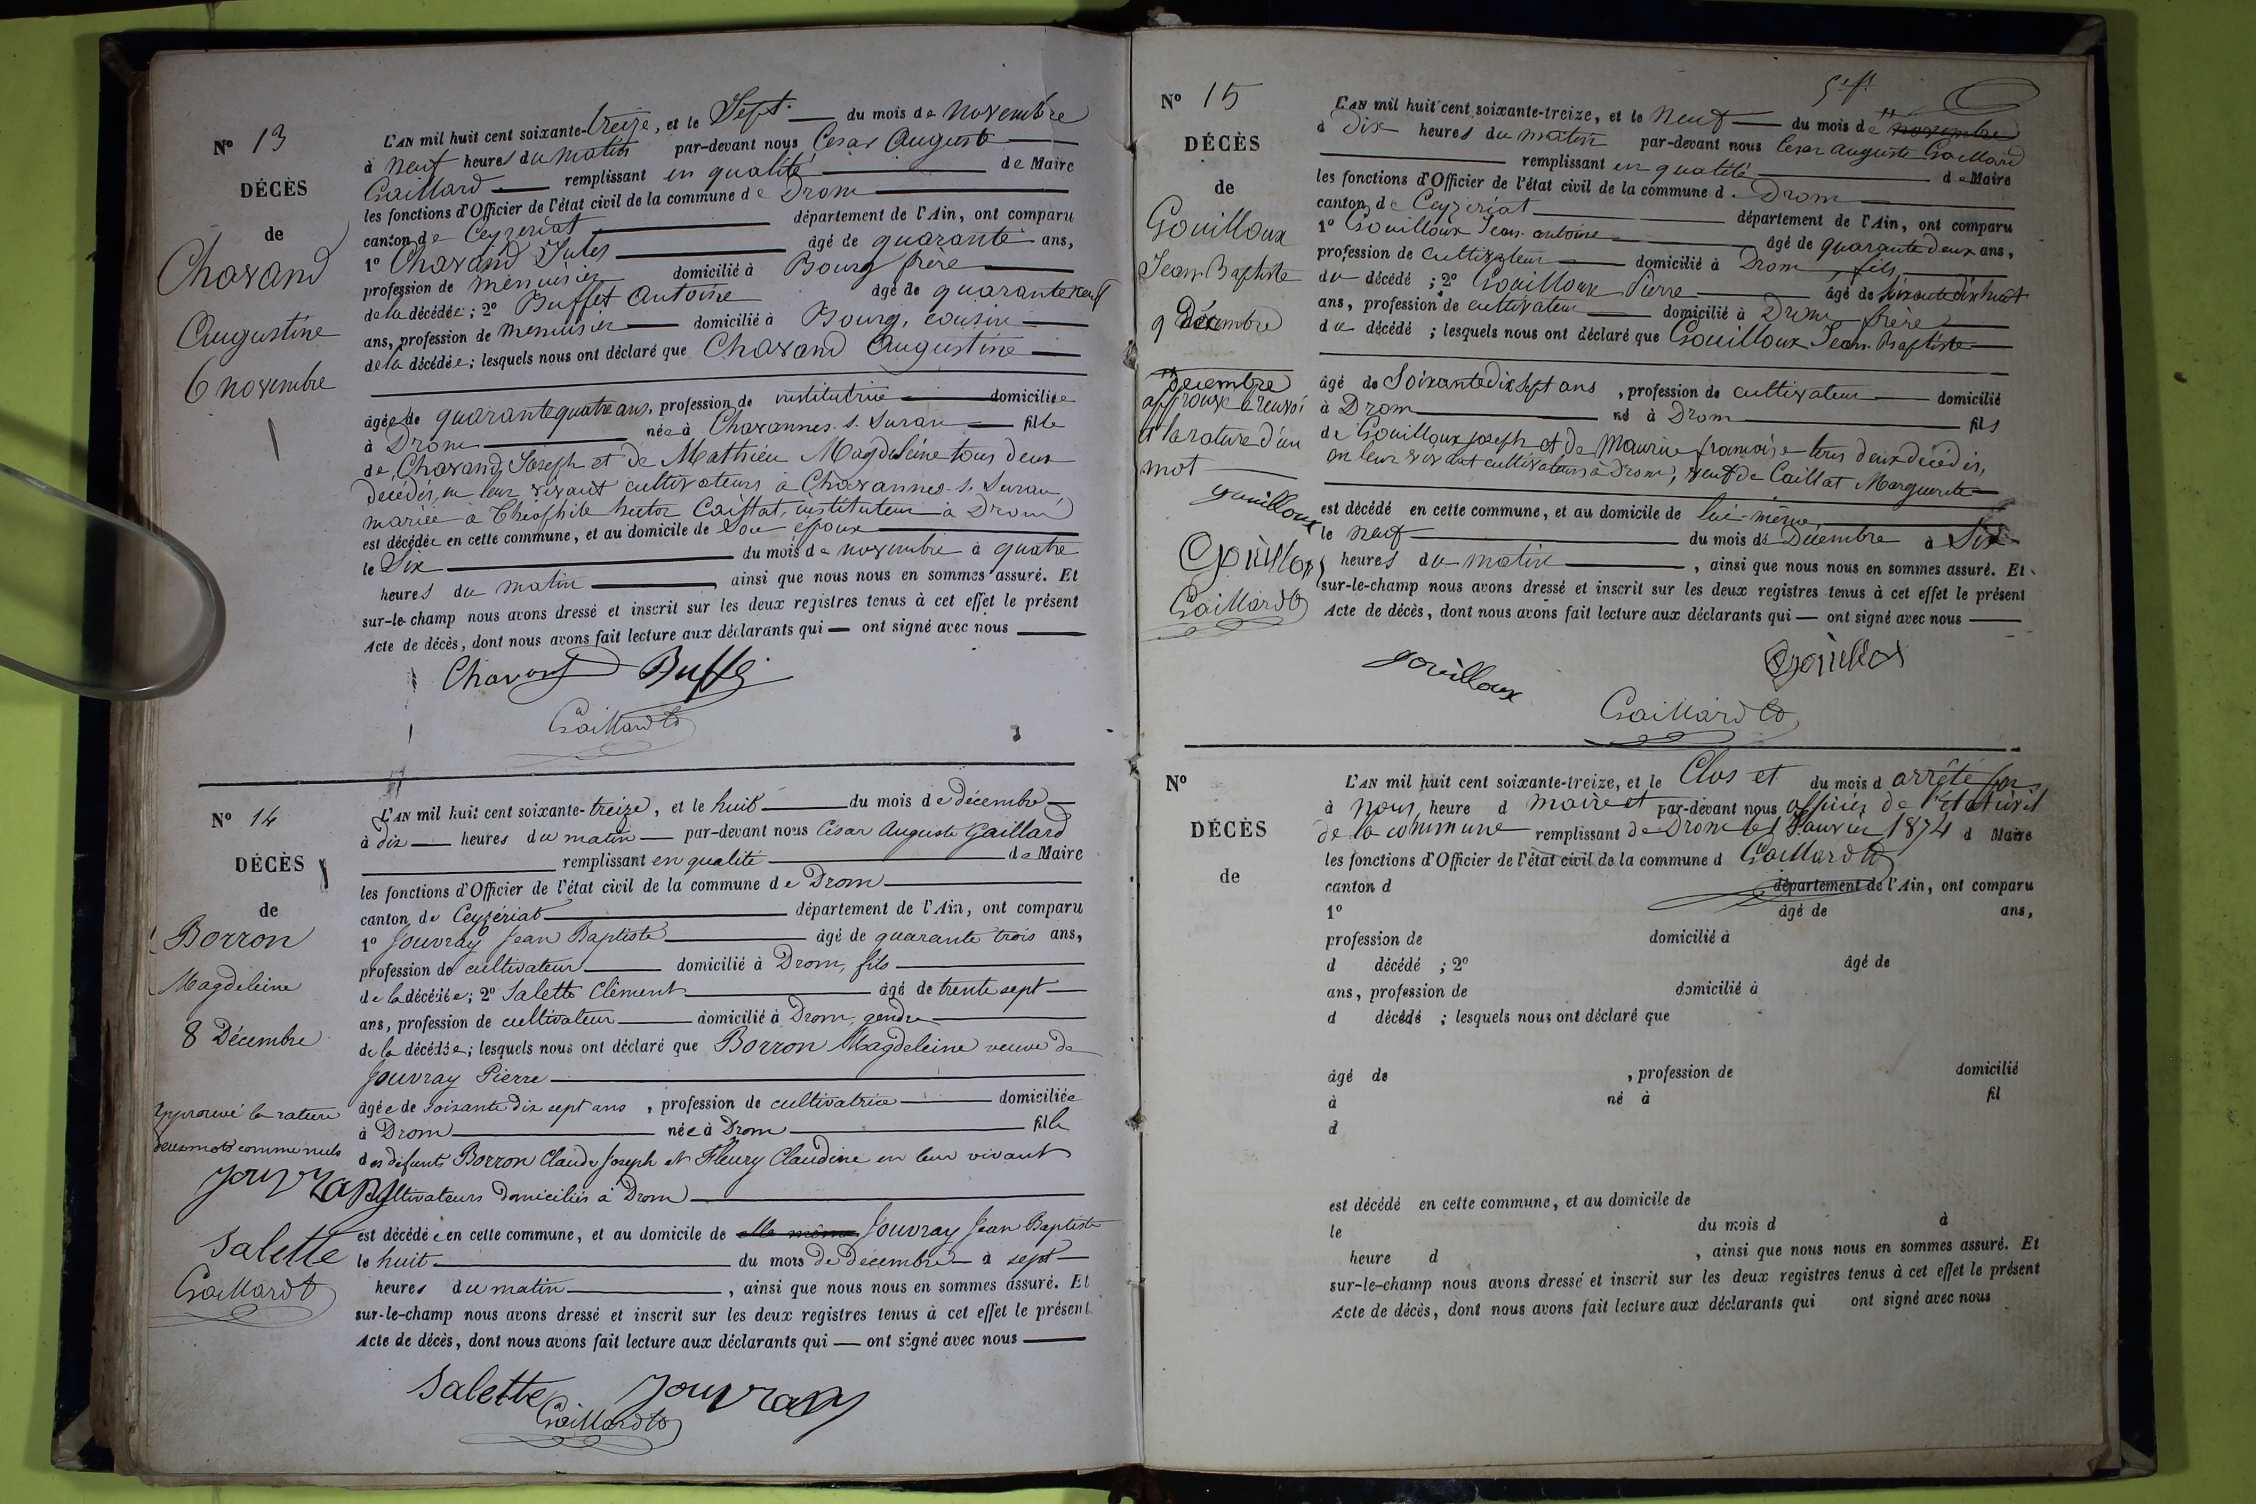 N° 13
DÉCÈS
de
Chavand
Augustine
6 novembre
L'AN mil huit cent soixante-treize, et le Sept du mois de novembre
à neuf heures du matin par-devant nous Cesar Auguste
Gaillard remplissant en qualité de Maire
les fonctions d'Officier de l'état civil de la commune de Drom
canton de Ceyzeriat département de l'Ain, ont comparu
1° Chavand Jules âgé de quarante ans,
profession de menuisier domicilié à Bourg frère
de la décédée ; 2° Buffet Antoine âgé de quarante neuf
ans, profession de menuisier domicilié à Bourg, cousin
de la décédée ; lesquels nous ont déclaré que Chavand Augustine
âgée de quarante quatre ans, profession de institutrice domiciliée
à Drom née à Chavannes s. Suran fille
de Chavand Joseph et de Mathieu Magdeleine tous deux
décédés, en leur vivant cultivateurs à Chavannes s. Suran,
mariée à Théophile hector Caillat, instituteur à Drom
est décédée en cette commune, et au domicile de Son époux
le Six du mois de novembre à quatre
heures du matin, ainsi que nous nous en sommes assuré. Et
sur-le-champ nous avons dressé et inscrit sur les deux registres tenus à cet effet le présent
Acte de décès, dont nous avons fait lecture aux déclarants qui ont signé avec nous
Chavand Buffet
Gaillard
N° 14
DÉCÈS
de
Borron
Magdeleine
8 Décembre
Approuvé la rature
deux mots comme nuls
Jouvray
Salette
Gaillard
L'AN mil huit cent soixante-treize, et le huit du mois de décembre
à dix heures du matin par-devant nous César Auguste Gaillard
remplissant en qualité de Maire
les fonctions d'Officier de l'état civil de la commune de Drom
canton de Ceyzériat département de l'Ain, ont comparu
1° Jouvray Jean Baptiste âgé de quarante trois ans,
profession de cultivateur domicilié à Drom, fils
de la décédée ; 2° Salette Clément âgé de trente sept
ans, profession de cultivateur domicilié à Drom, gendre
de la décédée ; lesquels nous ont déclaré que Borron Magdeleine veuve de
Jouvray Pierre
âgée de soixante dix sept ans, profession de cultivatrice domiciliée
à Drom née à Drom fille
des défunts Borron Claude Joseph et Fleury Claudine en leur vivant
cultivateurs domiciliés à Drom
est décédée en cette commune, et au domicile de elle même Jouvray Jean Baptiste
le huit du mois de Décembre à sept
heures du matin, ainsi que nous nous en sommes assuré. Et
sur-le-champ nous avons dressé et inscrit sur les deux registres tenus à cet effet le présent
Acte de décès, dont nous avons fait lecture aux déclarants qui ont signé avec nous
Salette Jouvray
Gaillard
N° 15
DÉCÈS
de
Gouilloux
Jean Baptiste
9 Décembre
decembre
approuvé le renvoi
et la rature d'un
mot
gouilloux
Gouilloux
Gaillard
L'AN mil huit cent soixante-treize, et le neuf du mois de novembre
à dix heures du matin par-devant nous Cesar auguste Gaillard
remplissant en qualité de Maire
les fonctions d'Officier de l'état civil de la commune d Drom
canton de Ceyzériat département de l'Ain, ont comparu
1° Gouilloux Jean antoine âgé de quarante deux ans,
profession de cultivateur domicilié à Drom, fils
du décédé ; 2° Gouilloux Pierre âgé de soixante dix huit
ans, profession de cultivateur domicilié à Drom frère
du décédé ; lesquels nous ont déclaré que Gouilloux Jean Baptiste
âgé de Soixante dix sept ans, profession de cultivateur domicilié
à Drom né à Drom fils
de Gouilloux joseph et de Maurin françoise tous deux décédés,
en leur vivant cultivateurs à Drom, veuf de Caillat Marguerite
est décédé en cette commune, et au domicile de lui-même
le neuf du mois de Décembre à Six
heures du matin, ainsi que nous nous en sommes assuré. Et
sur-le-champ nous avons dressé et inscrit sur les deux registres tenus à cet effet le présent
Acte de décès, dont nous avons fait lecture aux déclarants qui ont signé avec nous
gouilloux Gouilloux
Gaillard
N°
DÉCÈS
de
L'AN mil huit cent soixante-treize, et le Clos et du mois d arrêté par
à nous heure d maire et par-devant nous officier de l'état civil
de la commune remplissant de Drom le 1 Janvier 1874 d Maire
les fonctions d'Officier de l'état civil de la commune d Gaillard
canton d département de l'Ain, ont comparu
1° âgé de ans,
profession de domicilié à
d décédé ; 2° âgé de
ans, profession de domicilié à
d décédé ; lesquels nous ont déclaré que
âgé de , profession de domicilié
à né à fil
d
est décédé en cette commune, et au domicile de
le du mois d à
heure d , ainsi que nous nous en sommes assuré. Et
sur-le-champ nous avons dressé et inscrit sur les deux registres tenus à cet effet le présent
Acte de décès, dont nous avons fait lecture aux déclarants qui ont signé avec nous